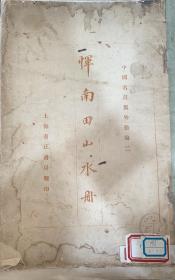 中國名畫集外冊第二
惲南田山水冊
上海有正書局發行